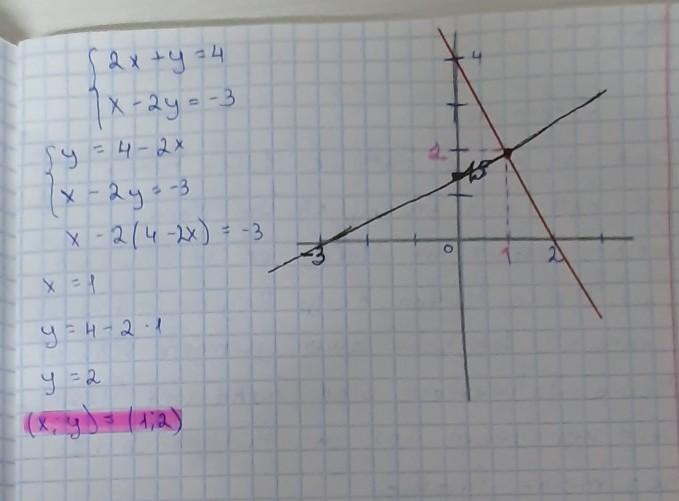 2x + y = 4
x - 2y = -3
y = 4 - 2x
x - 2y = -3
x - 2(4 - 2x) = -3
x = 1
y = 4 - 2 · 1
y = 2
(x; y) = (1; 2)
4
2
1,5
-3
0
1
2